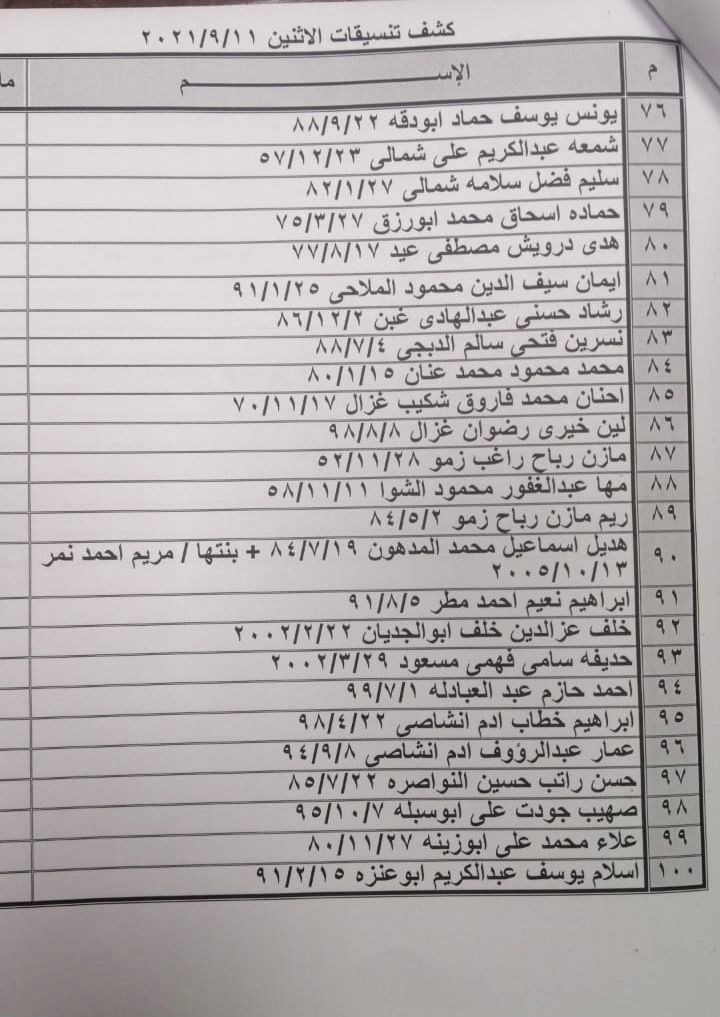 كشف تنسيقات الاثنين ٢٠٢١/٩/١١
م الإســـــــــــم
٧٦ يونس يوسف حماد ابودقه ٨٨/٩/٢٢
٧٧ شمعه عبدالكريم على شمالى ٥٧/١٢/٢٣
٧٨ سليم فضل سلامه شمالى ٨٢/١/٢٧
٧٩ حماده اسحاق محمد ابورزق ٧٥/٣/٢٧
٨٠ هدى درويش مصطفى عيد ٧٧/٨/١٧
٨١ ايمان سيف الدين محمود الملاحى ٩١/١/٢٥
٨٢ رشاد حسنى عبدالهادى غبن ٨٦/١٢/٢
٨٣ نسرين فتحى سالم الدبجى ٨٨/٧/٤
٨٤ محمد محمود محمد عنان ٨٠/١/١٥
٨٥ احنان محمد فاروق شكيب غزال ٧٠/١١/١٧
٨٦ لين خيرى رضوان غزال ٩٨/٨/٨
٨٧ مازن رباح راغب زمو ٥٢/١١/٢٨
٨٨ مها عبدالغفور محمود الشوا ٥٨/١١/١١
٨٩ ريم مازن رباح زمو ٨٤/٥/٢
٩٠ هديل اسماعيل محمد المدهون ٨٤/٧/١٩ + بنتها / مريم احمد نمر
٢٠٠٥/١٠/١٣
٩١ ابراهيم نعيم احمد مطر ٩١/٨/٥
٩٢ خلف عزالدين خلف ابوالجديان ٢٠٠٢/٢/٢٢
٩٣ حديفه سامى فهمى مسعود ٢٠٠٢/٣/٢٩
٩٤ احمد حازم عبد العبادله ٩٩/٧/١
٩٥ ابراهيم خطاب ادم انشاصى ٩٨/٤/٢٢
٩٦ عمار عبدالرؤوف ادم انشاصى ٩٤/٩/٨
٩٧ حسن راتب حسين النواصره ٨٥/٧/٢٢
٩٨ صهيب جودت على ابوسبله ٩٥/١٠/٧
٩٩ علاء محمد على ابوزينه ٨٠/١١/٢٧
١٠٠ اسلام يوسف عبدالكريم ابوعنزه ٩١/٢/١٥